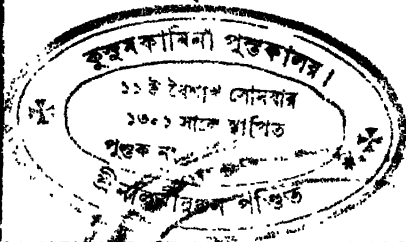 কুসুমকামিনী পুস্তকালয়।
১১ই বৈশাখ সোমবার
১৩০১ সালে স্থাপিত
পুস্তক নং
শ্রী পণ্ডিত